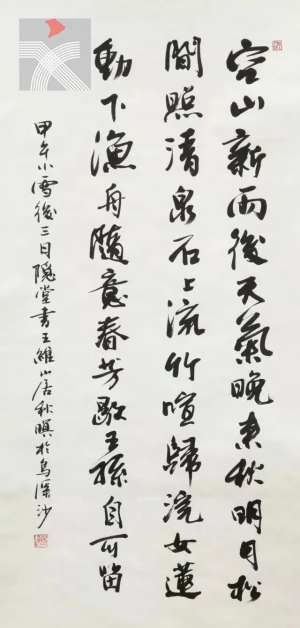 空山新雨後天氣晚來秋明月松
間照清泉石上流竹喧歸浣女蓮
動下漁舟隨意春芳歇王孫自可留
甲午小雪後三日隱堂書王維山居秋暝於烏溪沙